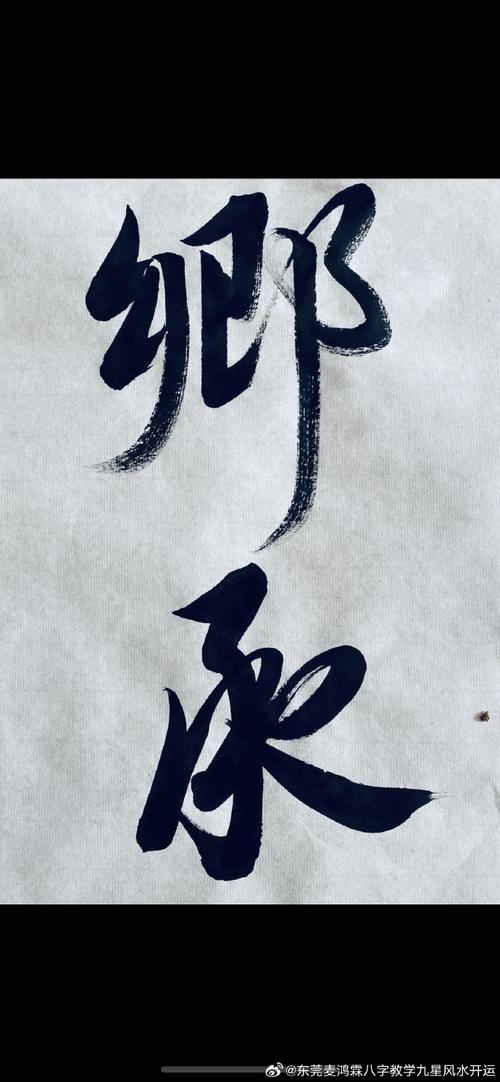 鄉
承
@东莞麦鸿霖八字教学九星风水开运